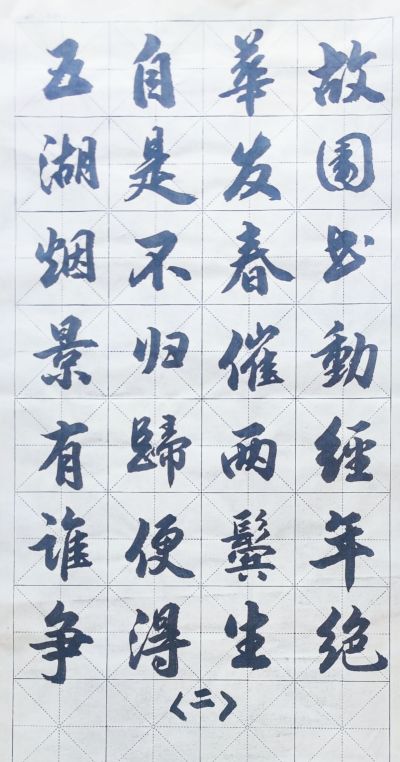 故園书動經年绝
華发春催两鬓生
自是不归歸便得
五湖烟景有谁争
〈二〉